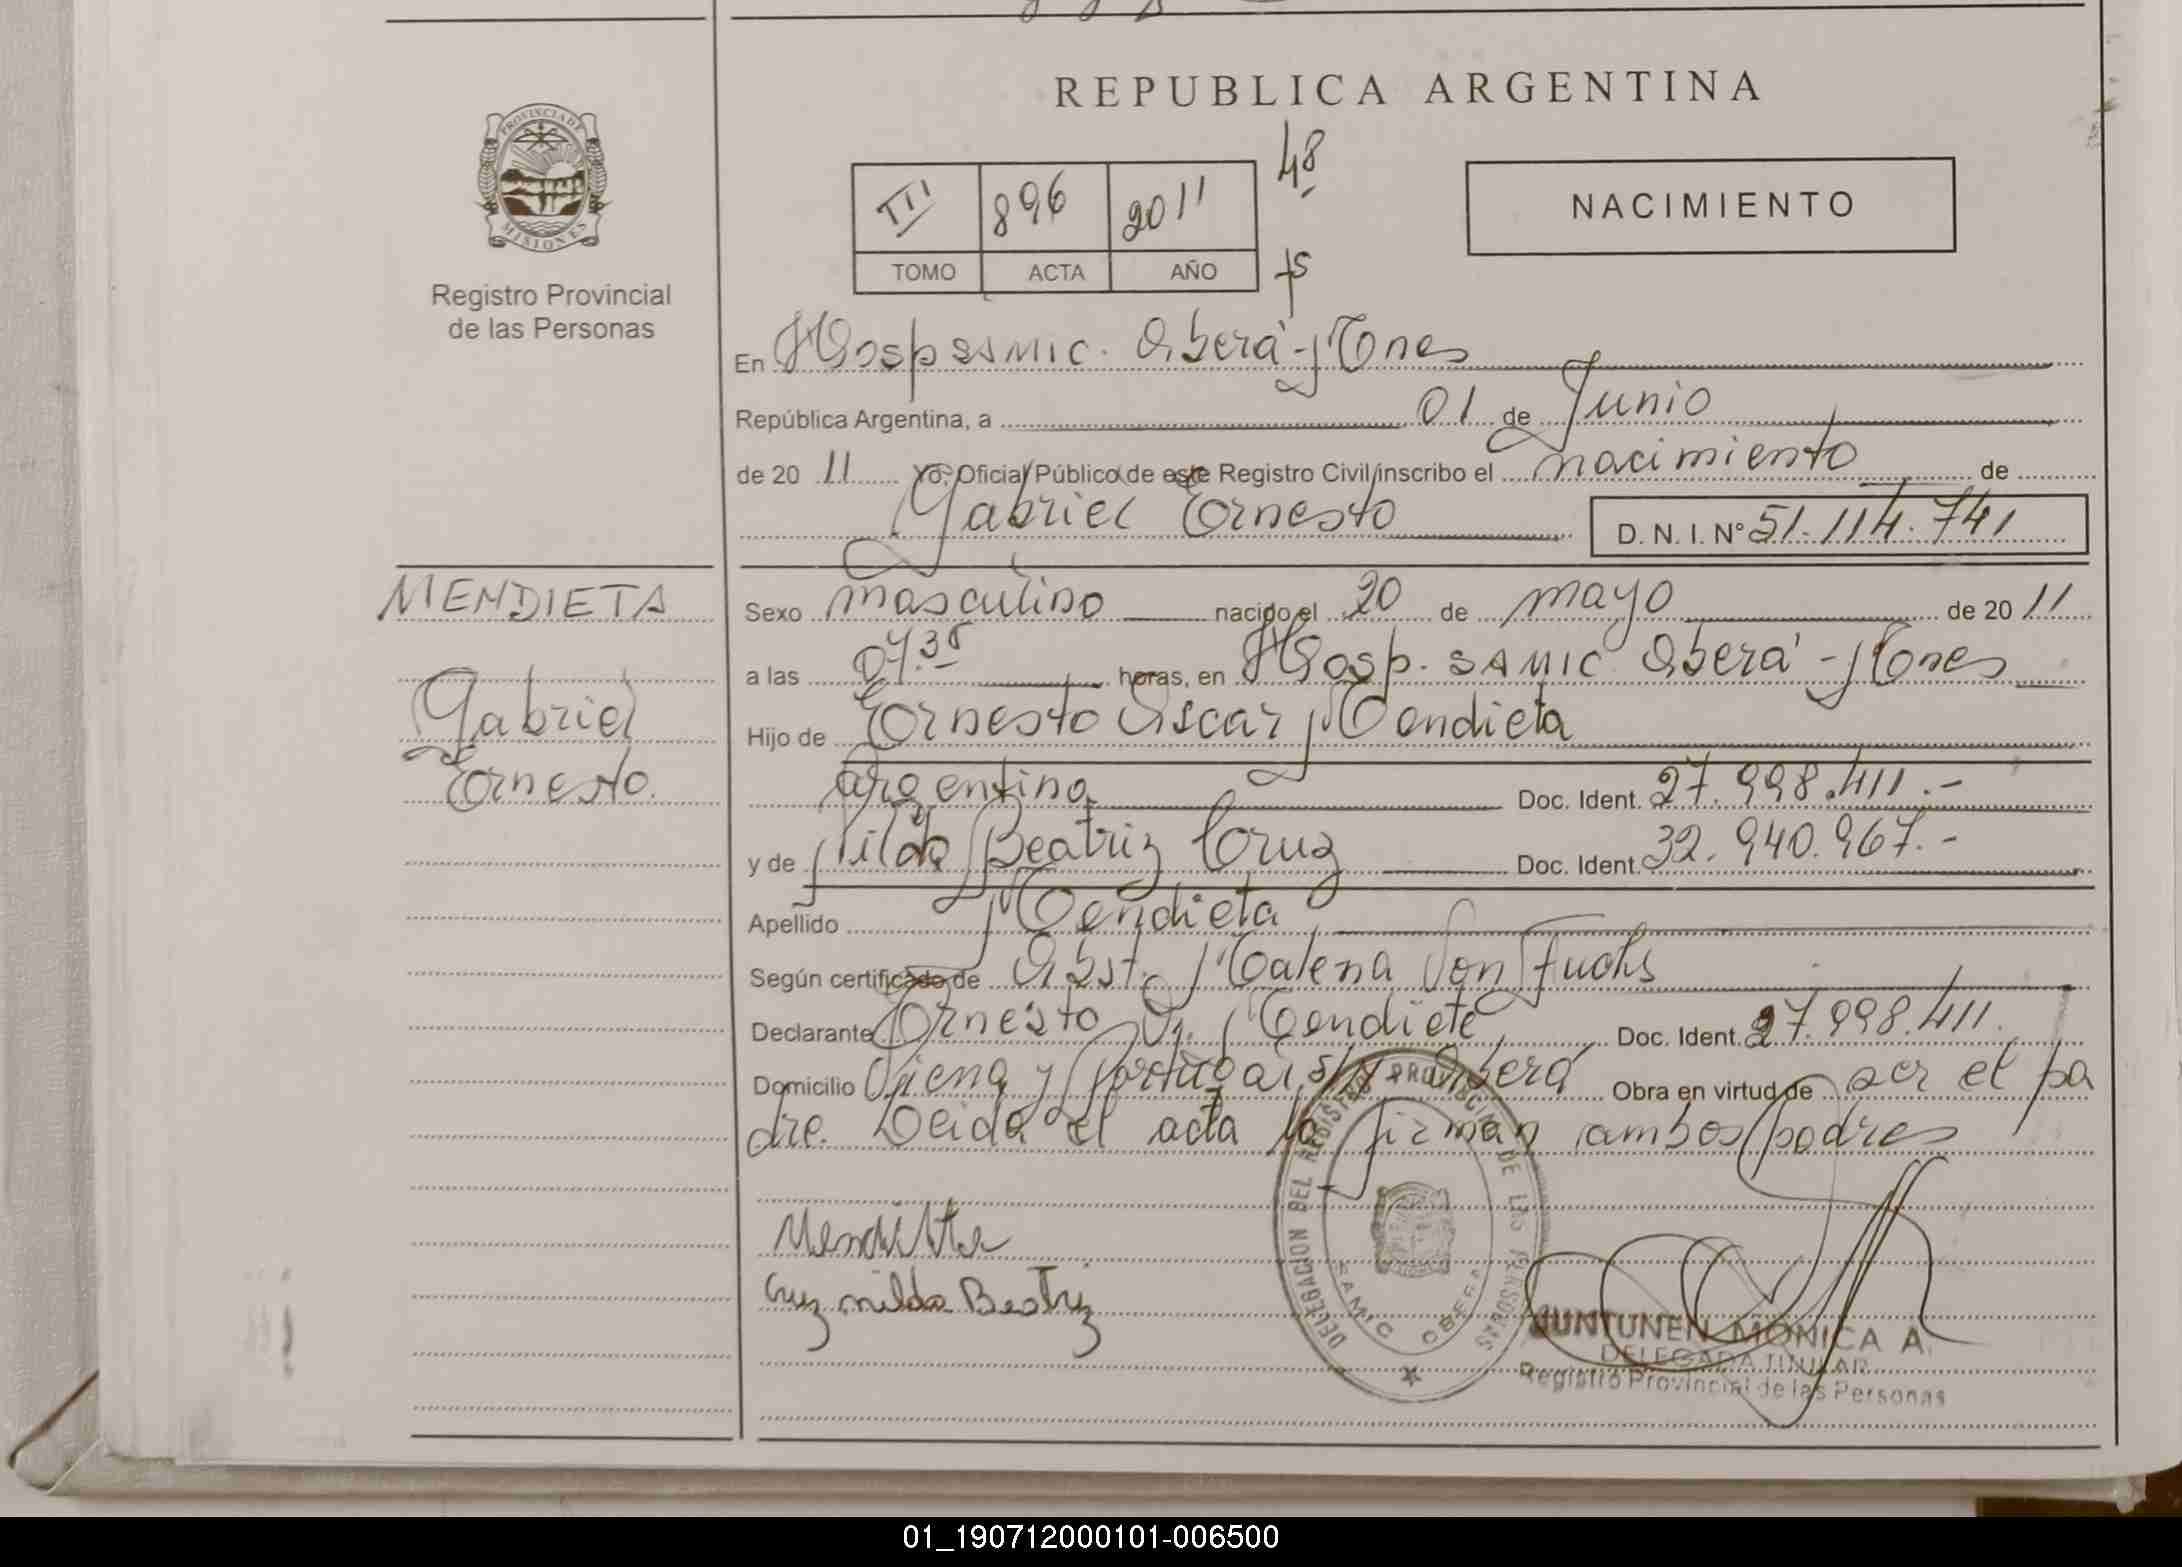 REPUBLICA ARGENTINA
PROVINCIA DE MISIONES
Registro Provincial
de las Personas
48
III 896 2011
TOMO ACTA AÑO
NACIMIENTO
En Hosp SAMIC. Oberá - Mones
República Argentina, a 01 de Junio
de 20 11 Yo, Oficial Público de este Registro Civil inscribo el nacimiento de
Gabriel Ernesto D. N. I. Nº 51.114.741
MENDIETA
Gabriel
Ernesto.
Sexo masculino nacido el 20 de mayo de 20 11
a las 07.35 horas, en Hosp. SAMIC Oberá - Mones
Hijo de Ernesto Oscar Mendieta
argentino Doc. Ident. 27.998.411.-
y de Nilda Beatriz Cruz Doc. Ident. 32.940.967.-
Apellido Mendieta
Según certificado de Obst. Malena Von Fuchs
Declarante Ernesto O. Mendieta Doc. Ident. 27.998.411.
Domicilio Viena y Portugal s/n Oberá Obra en virtud de ser el pa
dre. Leida el acta la firman ambos padres
Mendieta
Cruz nilda Beatriz
DELEGACION DEL REGISTRO PROVINCIAL DE LAS PERSONAS
SAMIC OBERA
JUNTUNEN MONICA A.
DELEGADA TITULAR
Registro Provincial de las Personas
01_190712000101-006500